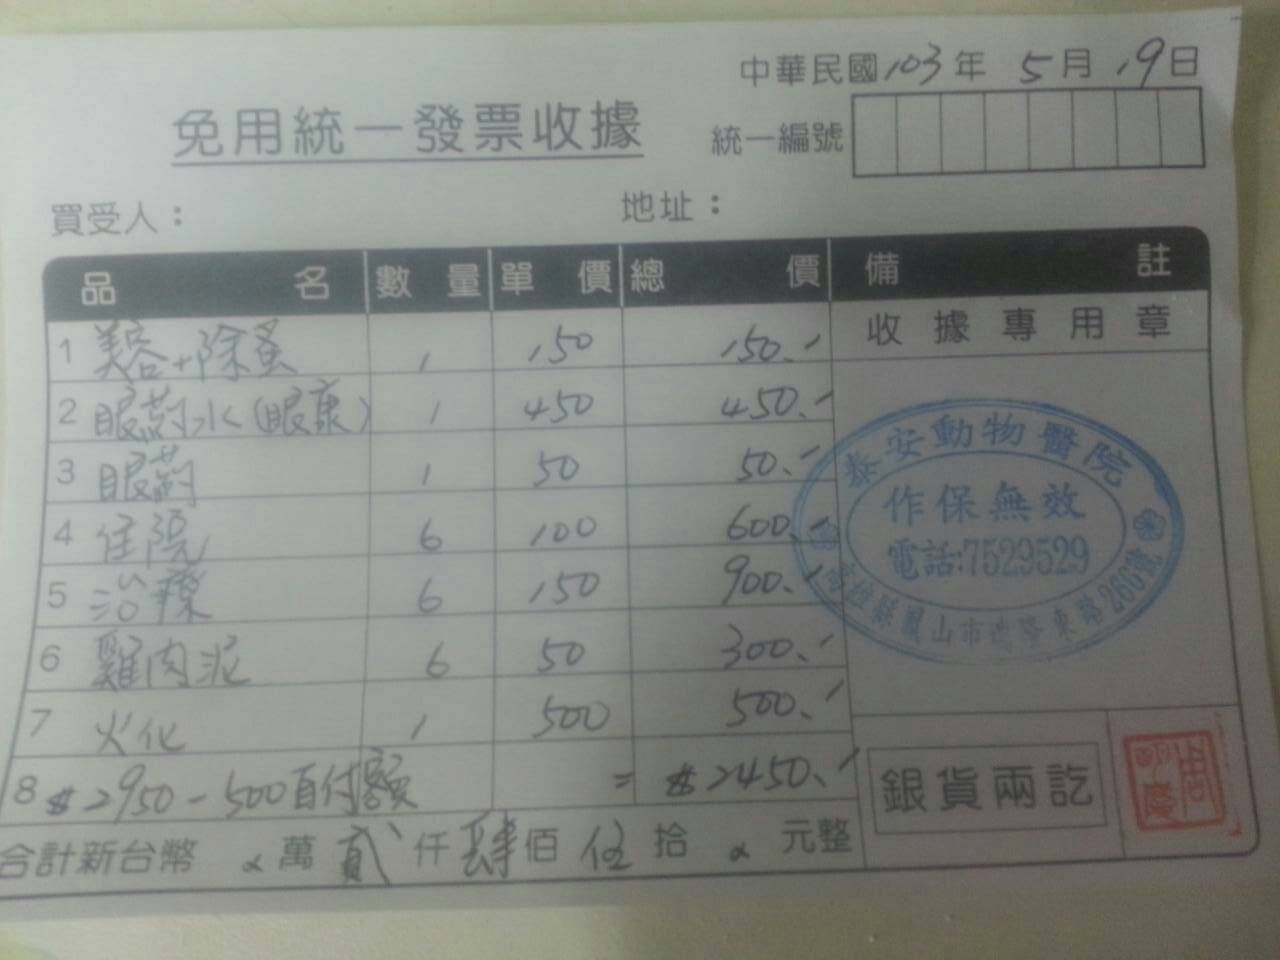 中華民國103年 5月 19日
免用統一發票收據
統一編號
買受人：
地址：
品名 數量 單價 總價 備註
收據專用章
1 美容+除蚤 1 150 150.-
2 眼葯水(眼康) 1 450 450.-
3 眼葯 1 50 50.-
4 住院 6 100 600.-
5 治療 6 150 900.-
6 雞肉泥 6 50 300.-
7 火化 1 500 500.-
8 $2950-500自付額 = $2450.-
泰安動物醫院
作保無效
電話:7529529
縣鳳山市 東路260號
銀貨兩訖
合計新台幣 萬 貳仟肆佰伍拾 元整